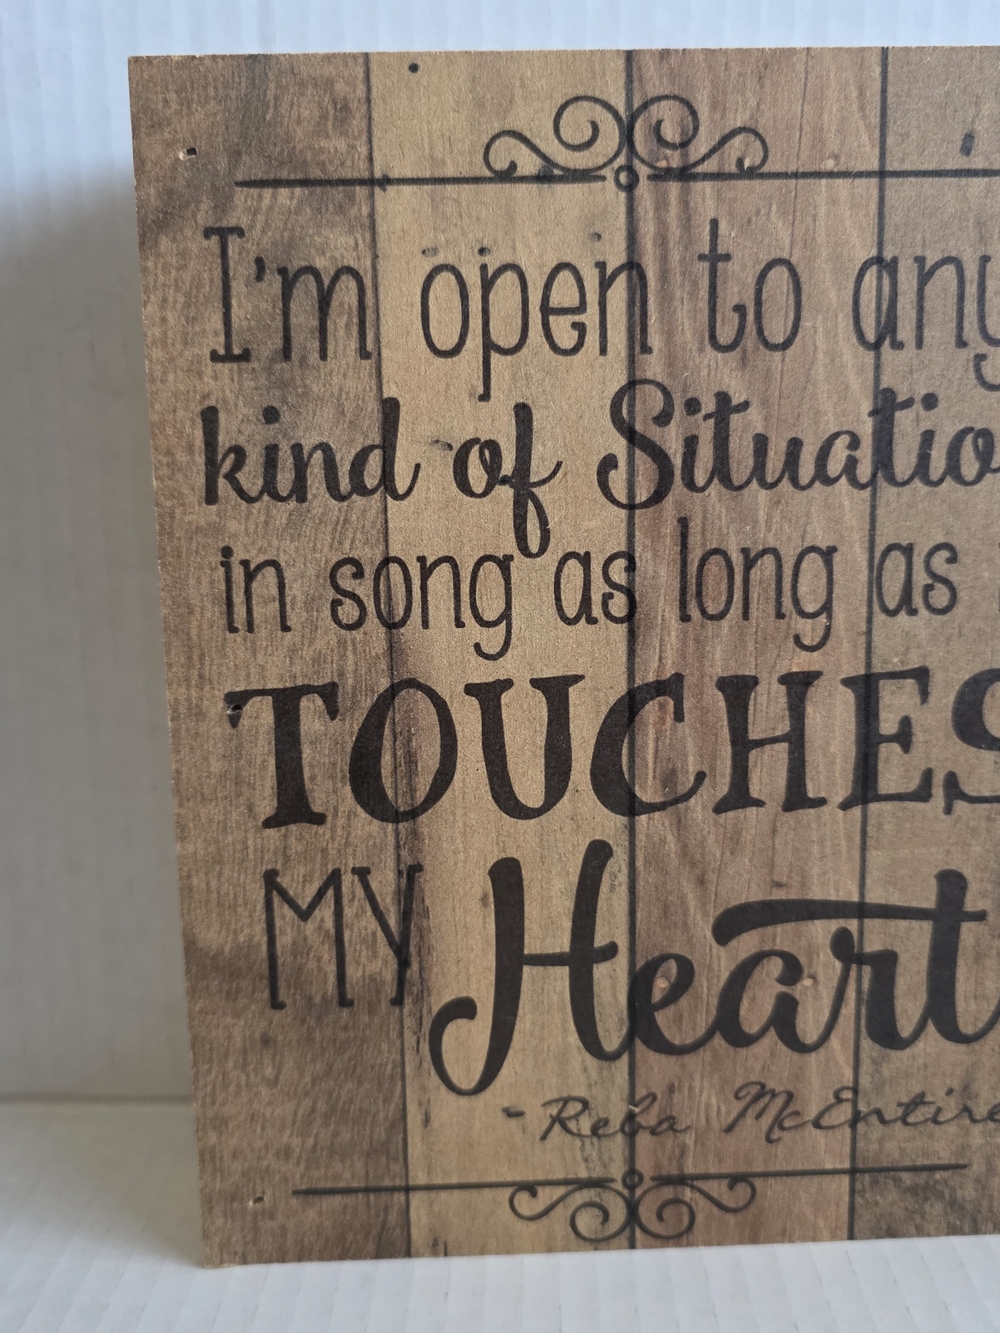 I'm open to any
kind of Situation
in song as long as
TOUCHES
MY Heart
- Reba McEntire